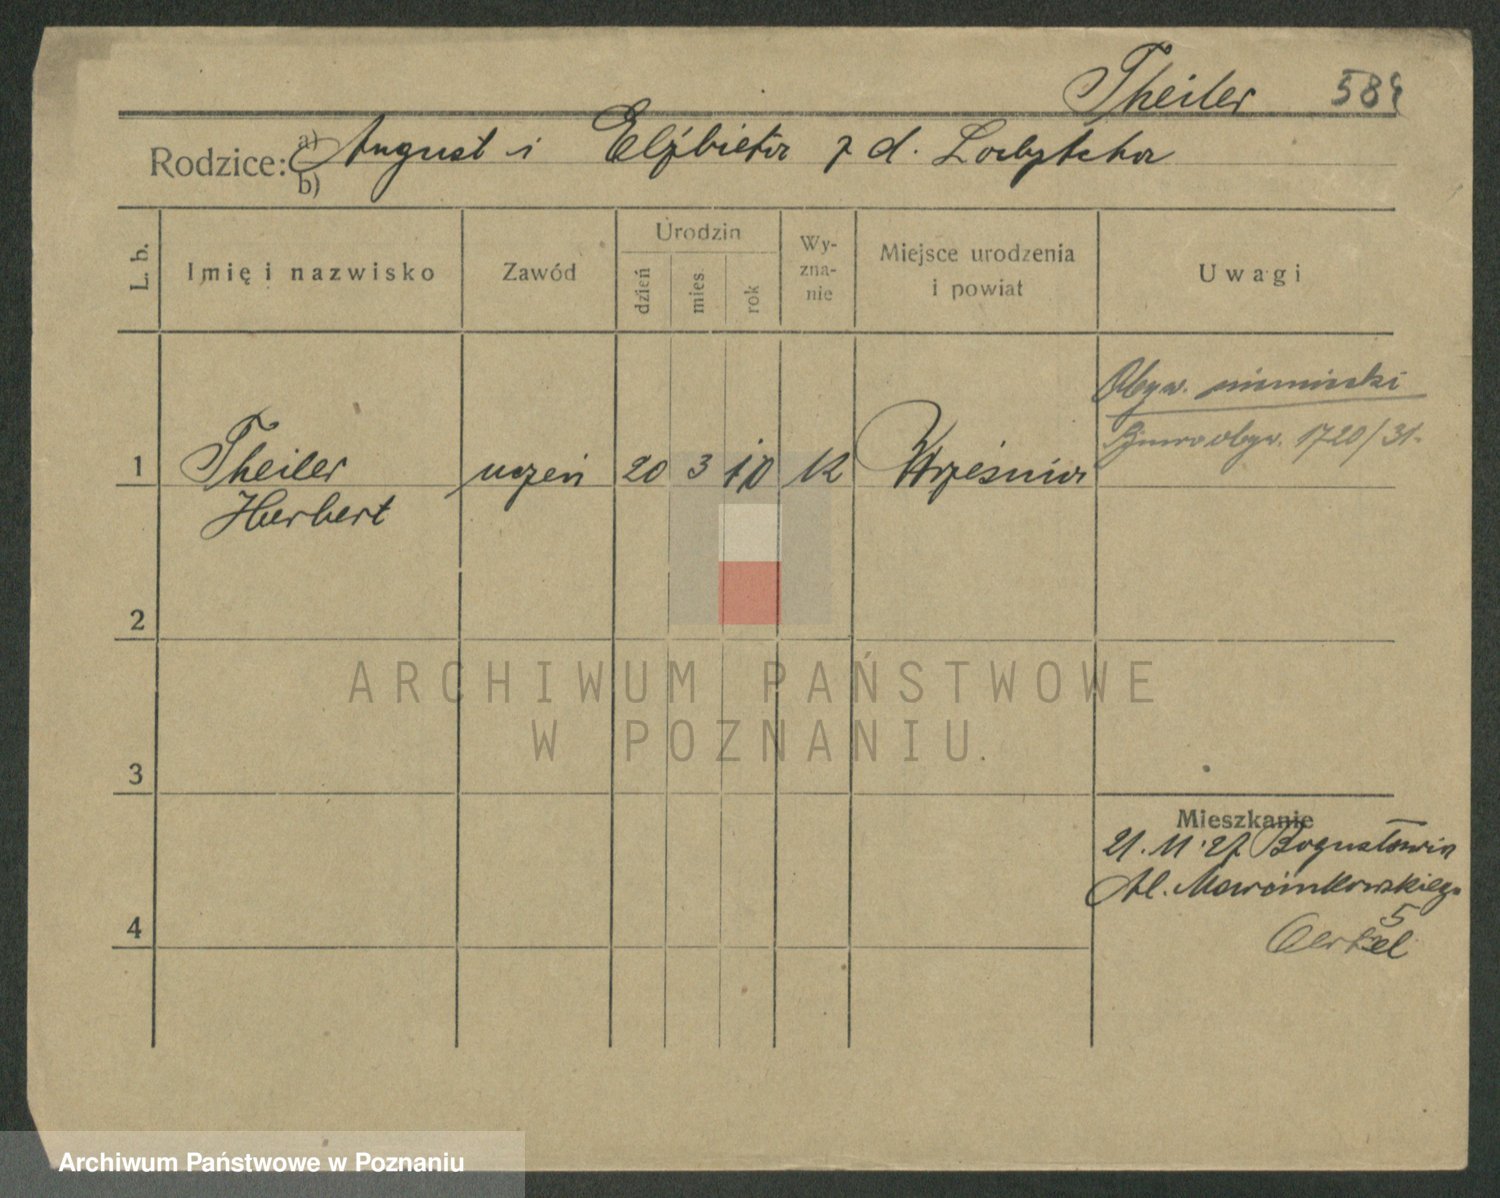 Theiler 584
Rodzice: a) August i Elżbieta z d.
b)
L. b.
Imię i nazwisko
Zawód
Urodzin
dzień
mies.
rok
Wy-
zna-
nie
Miejsce urodzenia
i powiat
Uwagi
Obyw. niemiecki
obyw. 1720/31.
1 Theiler uczeń 20 3 10 Września
Herbert
2
3
4
Mieszkanie
21.11.27 Bogusławin
Al. Marcinkowskiego
5
ARCHIWUM PAŃSTWOWE
W POZNANIU.
Archiwum Państwowe w Poznaniu